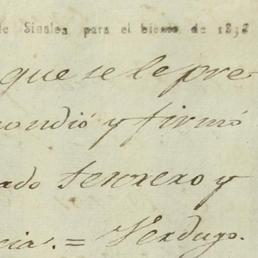 de Sinaloa para el bienio de 183
que se le pre-
ondió y firmó
ado Terrero y
cia. = Verdugo.